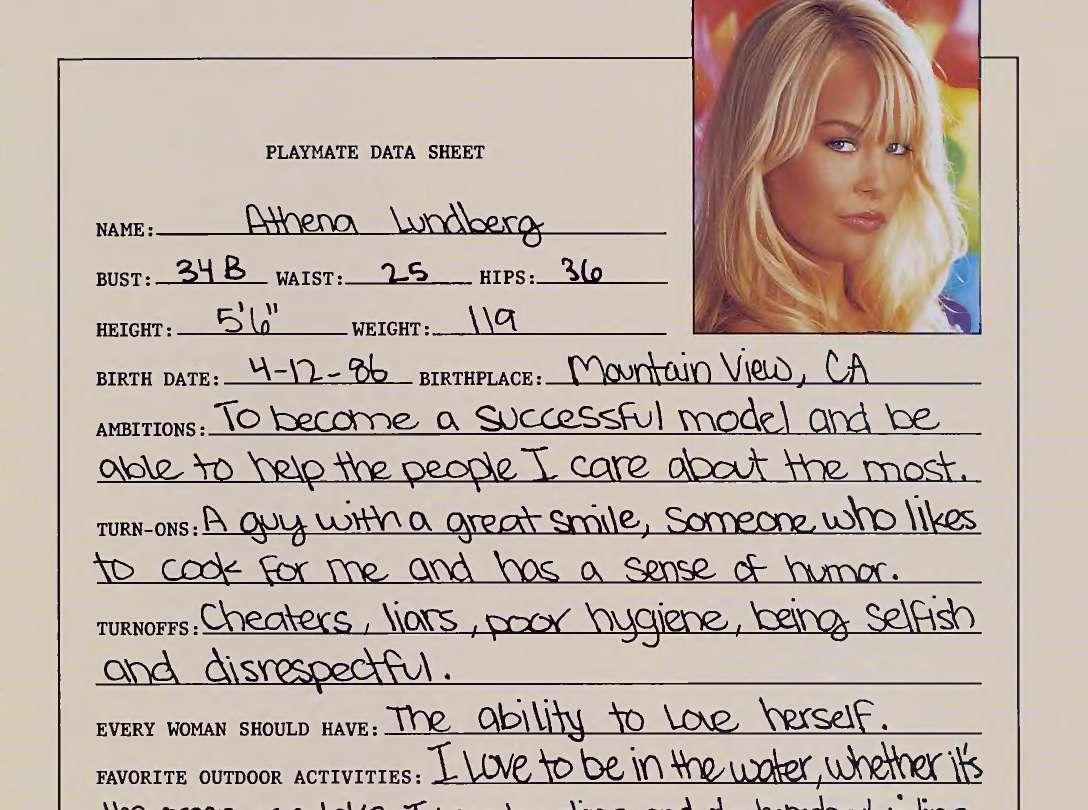 PLAYMATE DATA SHEET
NAME: Athena Lundberg
BUST: 34B WAIST: 25 HIPS: 36
HEIGHT: 5'6" WEIGHT: 119
BIRTH DATE: 4-12-86 BIRTHPLACE: Mountain View, CA
AMBITIONS: To become a successful model and be
able to help the people I care about the most.
TURN-ONS: A guy with a great smile, someone who likes
to cook for me and has a sense of humor.
TURNOFFS: Cheaters, liars, poor hygiene, being selfish
and disrespectful.
EVERY WOMAN SHOULD HAVE: The ability to love herself.
FAVORITE OUTDOOR ACTIVITIES: I love to be in the water, whether it's